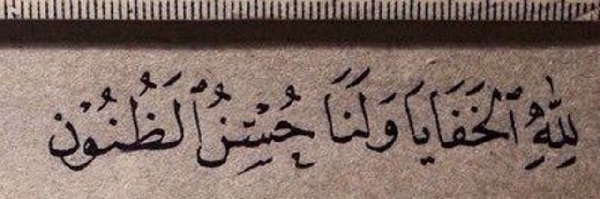 لِلَّهِ ٱلخَفَايَا وَلَنَا حُسْنُ ٱلظُنُوْن